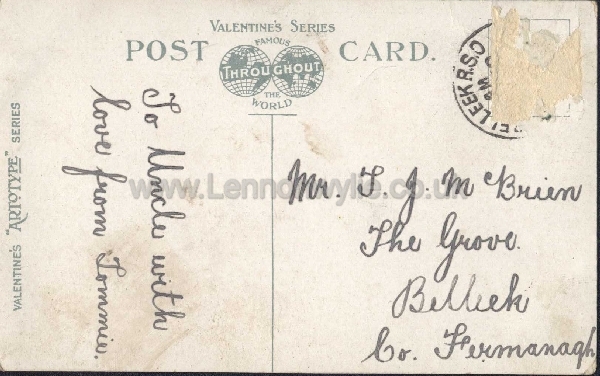 VALENTINE'S SERIES
POST CARD.
FAMOUS
THROUGHOUT
THE
WORLD
BELLEEK R.S.O
VALENTINE'S "ARTOTYPE" SERIES
To Uncle with
love from Tommie.
Mr. T. J. McBrien
The Grove.
Belleek
Co. Fermanagh